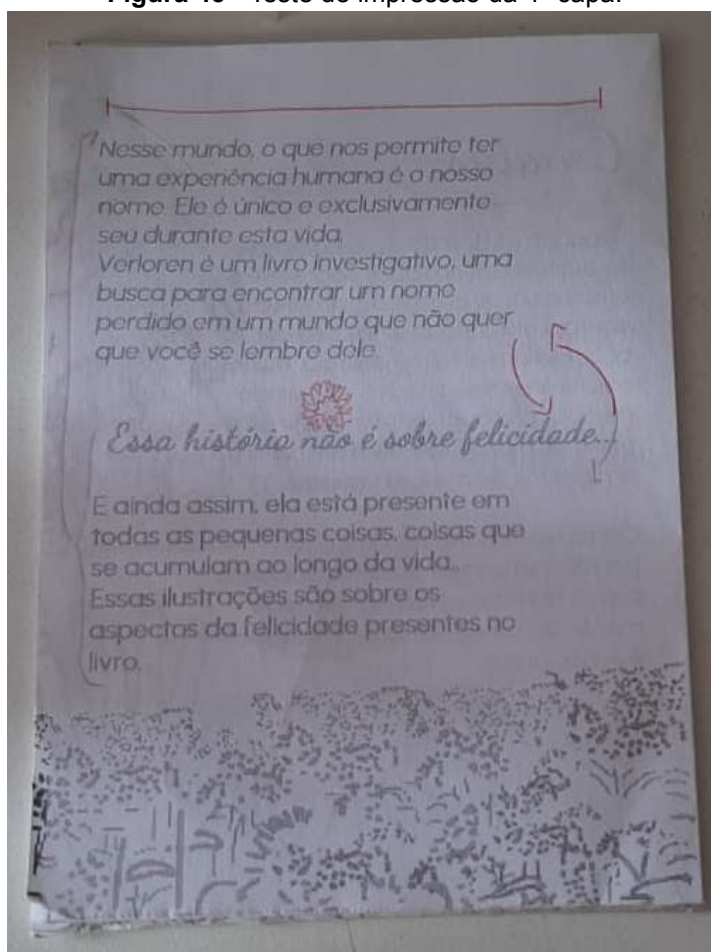 Nesse mundo, o que nos permite ter
uma experiência humana é o nosso
nome. Ele é único e exclusivamente
seu durante esta vida.
Verloren é um livro investigativo, uma
busca para encontrar um nome
perdido em um mundo que não quer
que você se lembre dele.
Essa história não é sobre felicidade...
E ainda assim, ela está presente em
todas as pequenas coisas, coisas que
se acumulam ao longo da vida...
Essas ilustrações são sobre os
aspectos da felicidade presentes no
livro.